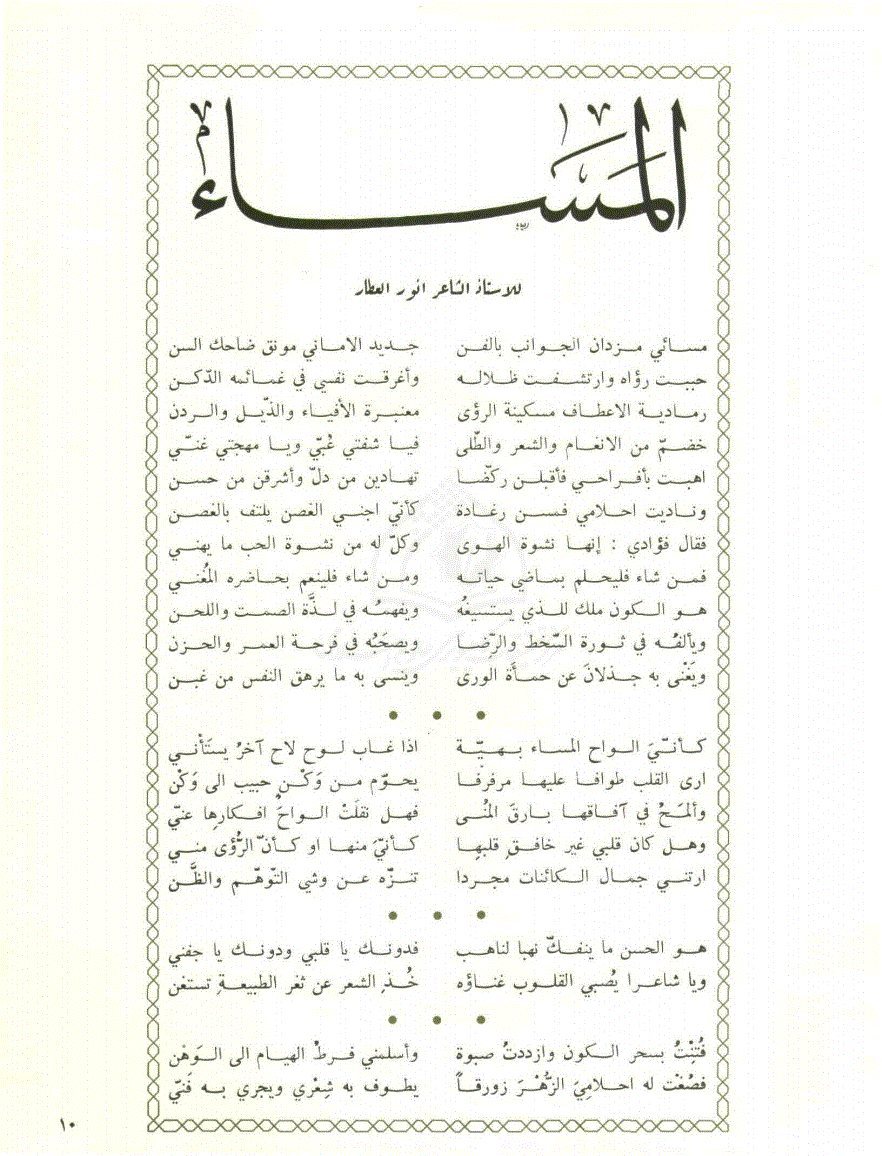 المساء
للاستاذ الشاعر انور العطار
مسائي مزدان الجوانب بالفن جديد الاماني مونق ضاحك السن
حببت رؤاه وارتشفت ظلاله وأغرقت نفسي في غمائمه الدّكن
رمادية الاعطاف مسكينة الرؤى معنبرة الأفياء والذّيل والردن
خضمّ من الانغام والشعر والطّلى فيا شفتي غُبّي ويا مهجتي غنّي
اهبت بأفراحي فأقبلن ركضّا تهادين من دلّ وأشرقن من حسن
وناديت احلامي فمسن رغادة كأنيّ اجني الغصن يلتف بالغصن
فقال فؤادي : إنها نشوة الهوى وكلّ له من نشوة الحب ما يهني
فمن شاء فليحلم بماضي حياته ومن شاء فلينعم بحاضره المُغني
هو الكون ملك للذي يستسيغُه ويفهمُه في لذَّة الصمت واللحن
ويألفُه في ثورة السّخط والرِّضا ويصحَبُه في فرحة العمر والحزن
ويَغْنى به جذلانَ عن حمأَة الورى وينسى به ما يرهق النفس من غبن
• • •
كأنّيَ الواح المساء بهيّة اذا غاب لوح لاح آخرُ يستَأْني
ارى القلب طوافا عليها مرفرفا يحوّم من وَكْنٍ حبيب الى وَكْن
وألمَحُ في آفاقها بارقَ المُنى فهل نقلَتْ الواحَ افكارِها عنيّ
وهل كان قلبي غير خافقِ قلبِها كأنيَّ منها او كأنّ الرُّؤى مني
ارتني جمال الكائنات مجردا تنزّه عن وشي التوهّم والظَّن
• • •
هو الحسن ما ينفكّ نهبا لناهب فدونك يا قلبي ودونك يا جفني
ويا شاعرا يُصبي القلوب غناؤه خُذِ الشعر عن ثغر الطبيعةِ تستغن
• • •
فُتِنْتُ بسحر الكون وازددتُ صبوة وأسلمني فرطُ الهيام الى الوَهْن
فصُغْت له احلاميَ الزُّهْرَ زورقاً يطوف به شِعْري ويجري به فَنّي
١٠